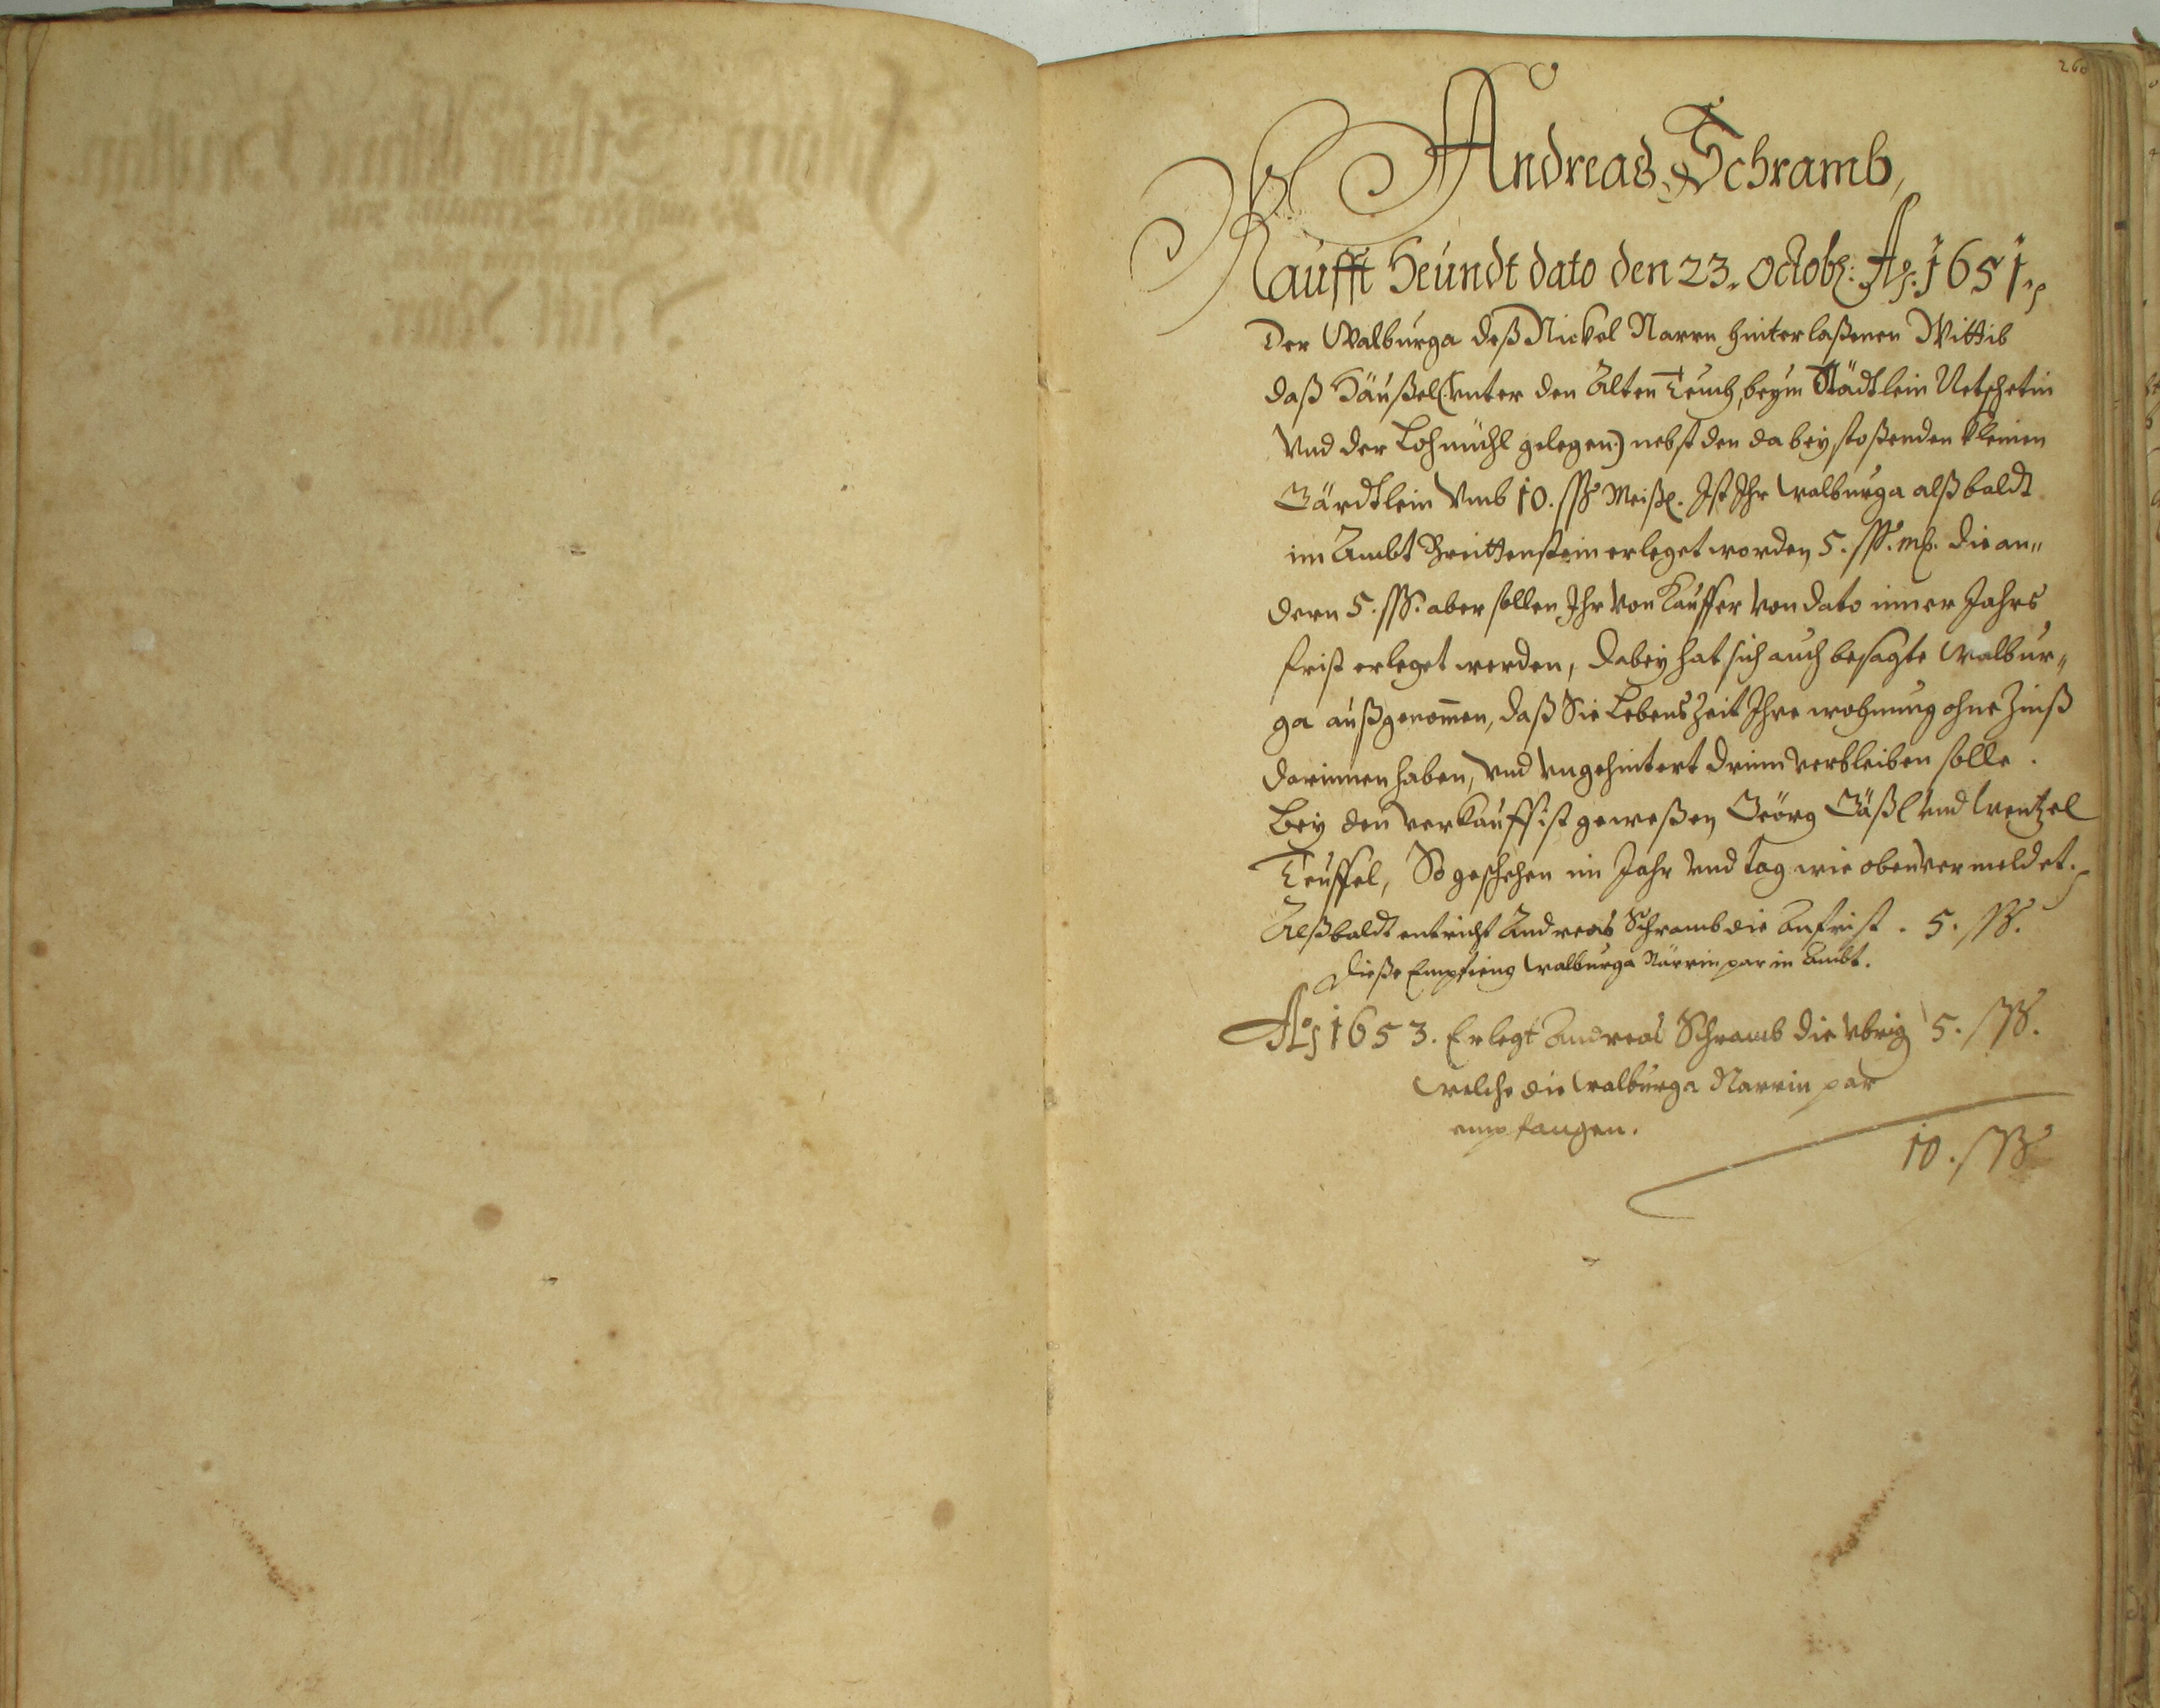 260
Andreas Schramb,
Kaufft Heundt dato den 23. Octob: Ao: 1651.
Der Walburga deß Nickel Narrn hinterlaßenen Wittib
daß Häußel (: vnter den Alten Teuch, beym Städtlein Netschetin
Vnd der Lohmühl gelegen :) nebst den dabey stoßenden kleinen
Gärdtlein Vmb 10. ßß Meißl. Ist Ihr Walburga alßbaldt
im Ambt Breittenstein erleget worden 5. ßß. mß. die an„
dern 5. ßß. aber sollen Ihr Von Kauffer Von dato inner Jahrs
frist erleget werden, Dabey hat sich auch besagte Walbur„
ga außgenom̄en, daß Sie Lebens Zeit Ihre wohnung ohne Zinß
darinnen haben, Vnd Vngehintert drinn verbleiben solle.
Bey den verkauff ist geweßen Geörg Gäßl Vnd Wentzel
Teuffel, So geschehen im Jahr Vnd Tag wie oben vermeldet.
Alßbaldt entricht Andreas Schramb die Anfrist . 5. ßß.
Dieße Empfieng Walburga Närrin par in Ambt.
Ao 1653. Erlegt Andreas Schramb die Vbrig 5. ßß.
Welche die Walburga Narrin par
empfangen.
10. ßß